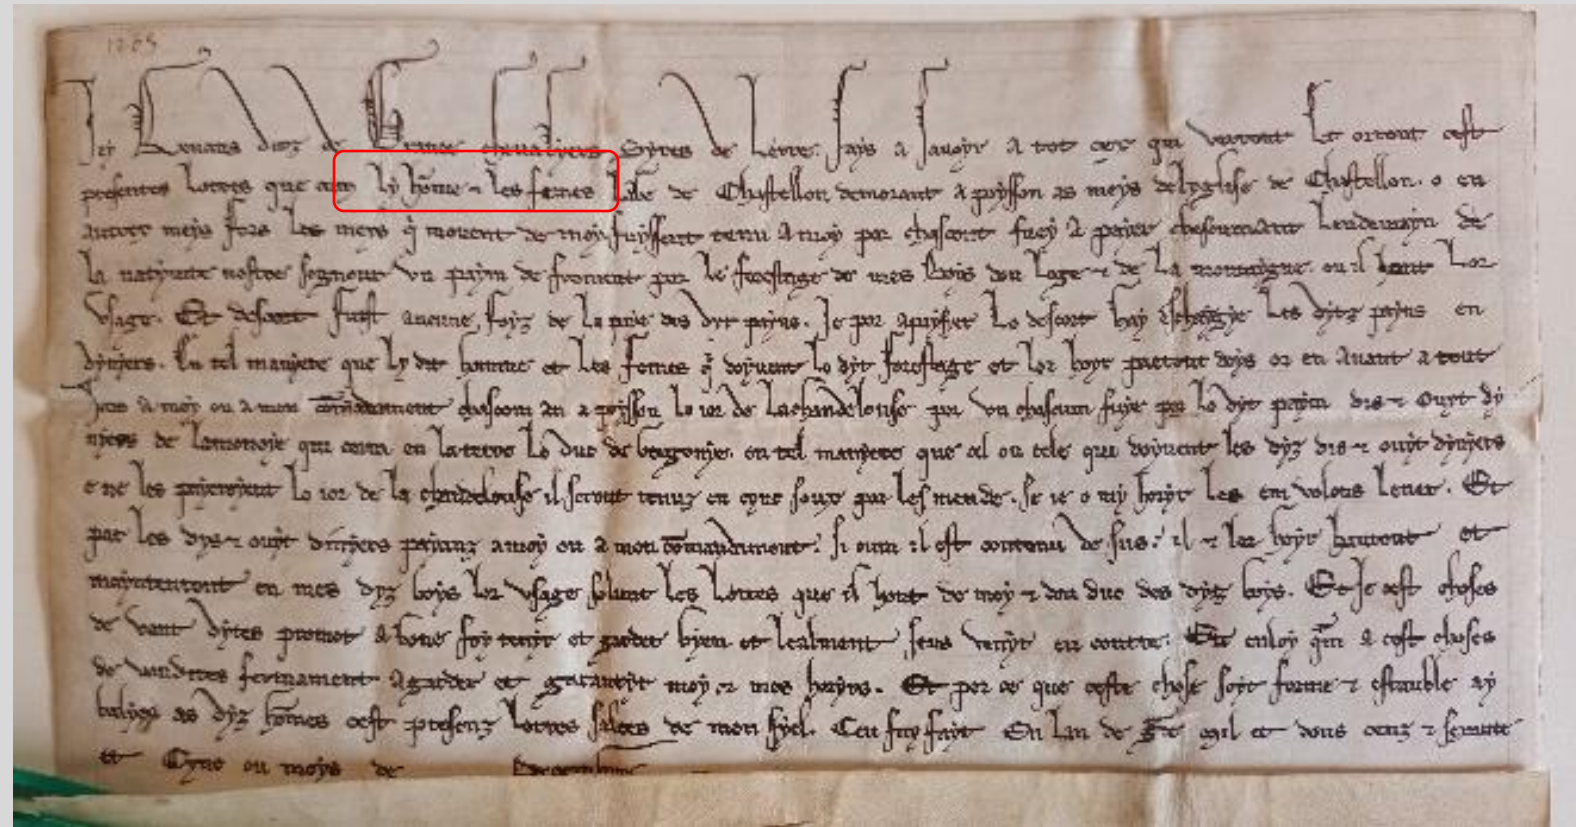 1265
Je Eduars diz de Grance chevaliers Syres de Leyre. fays a savoyr a toz cez qui verront et orront cest
presentes Lettres que com ly hõme ⁊ les femes labé de Chastellon demorant a poysson es meys delyglise de Chastellon. o en
autrez meys fors les meys q̃ movent de moy fuyssent tenu a moy por chascont fuey a paier chescun lendemayn de
la natyvite nostre segnour un payn de froment por le forestage de mes boys dou loge ⁊ de la montaigne. ou il hont lor
Usage. Et descort fust aucune foyz de la prise des dyt payns. Je por apaysier lo descort hay eschangye les dytz payns en
dyniers. En tel maniere que ly dit homme et les femes q̃ doyvent lo dyt forestage et lor hoyr paeront doys or en avant a tout
Jors a moy ou a mon cõmandement chascom an a poysson lo ior de la chandelouse por un chascun fuye por lo dyt payn dis ⁊ ouyt dy
niers de lamonoie qui corra en la terre lo duc de borgonie. en tel maniere que cil ou cele que doyvent les dyz dis ⁊ ouyt dyniers
e ne les paieroyent lo ior de la chandelouse il seront tenuz en cync souz por lesmende. se ie o my hoyr les em volons lever. Et
par les dys ⁊ ouyt diniers paianz a moy ou a mon cõmandement. si com il est contenu desus. il ⁊ lor hoyr hauront et
mayntenront en mes dyz boys lor usage solunt les letres que il hont de moy ⁊ dou duc des dytz boys. Et Je cest choses
de vent dytes promot a bone foy tenyr et garder byen et lealment sens venyr en contre. Et enloy q̃m a cest choses
de vandites fermament a garder et garantyr moy ⁊ mes hoyrs. Et por ce que ceste chose soyt ferme ⁊ estauble ay
balyes as dyz hõmes cest presenz letres salees de mon syel. Ceu fuy fayt En lan de gr̃e mil et dous cenz ⁊ sexante
et Cync ou moys de Decembre